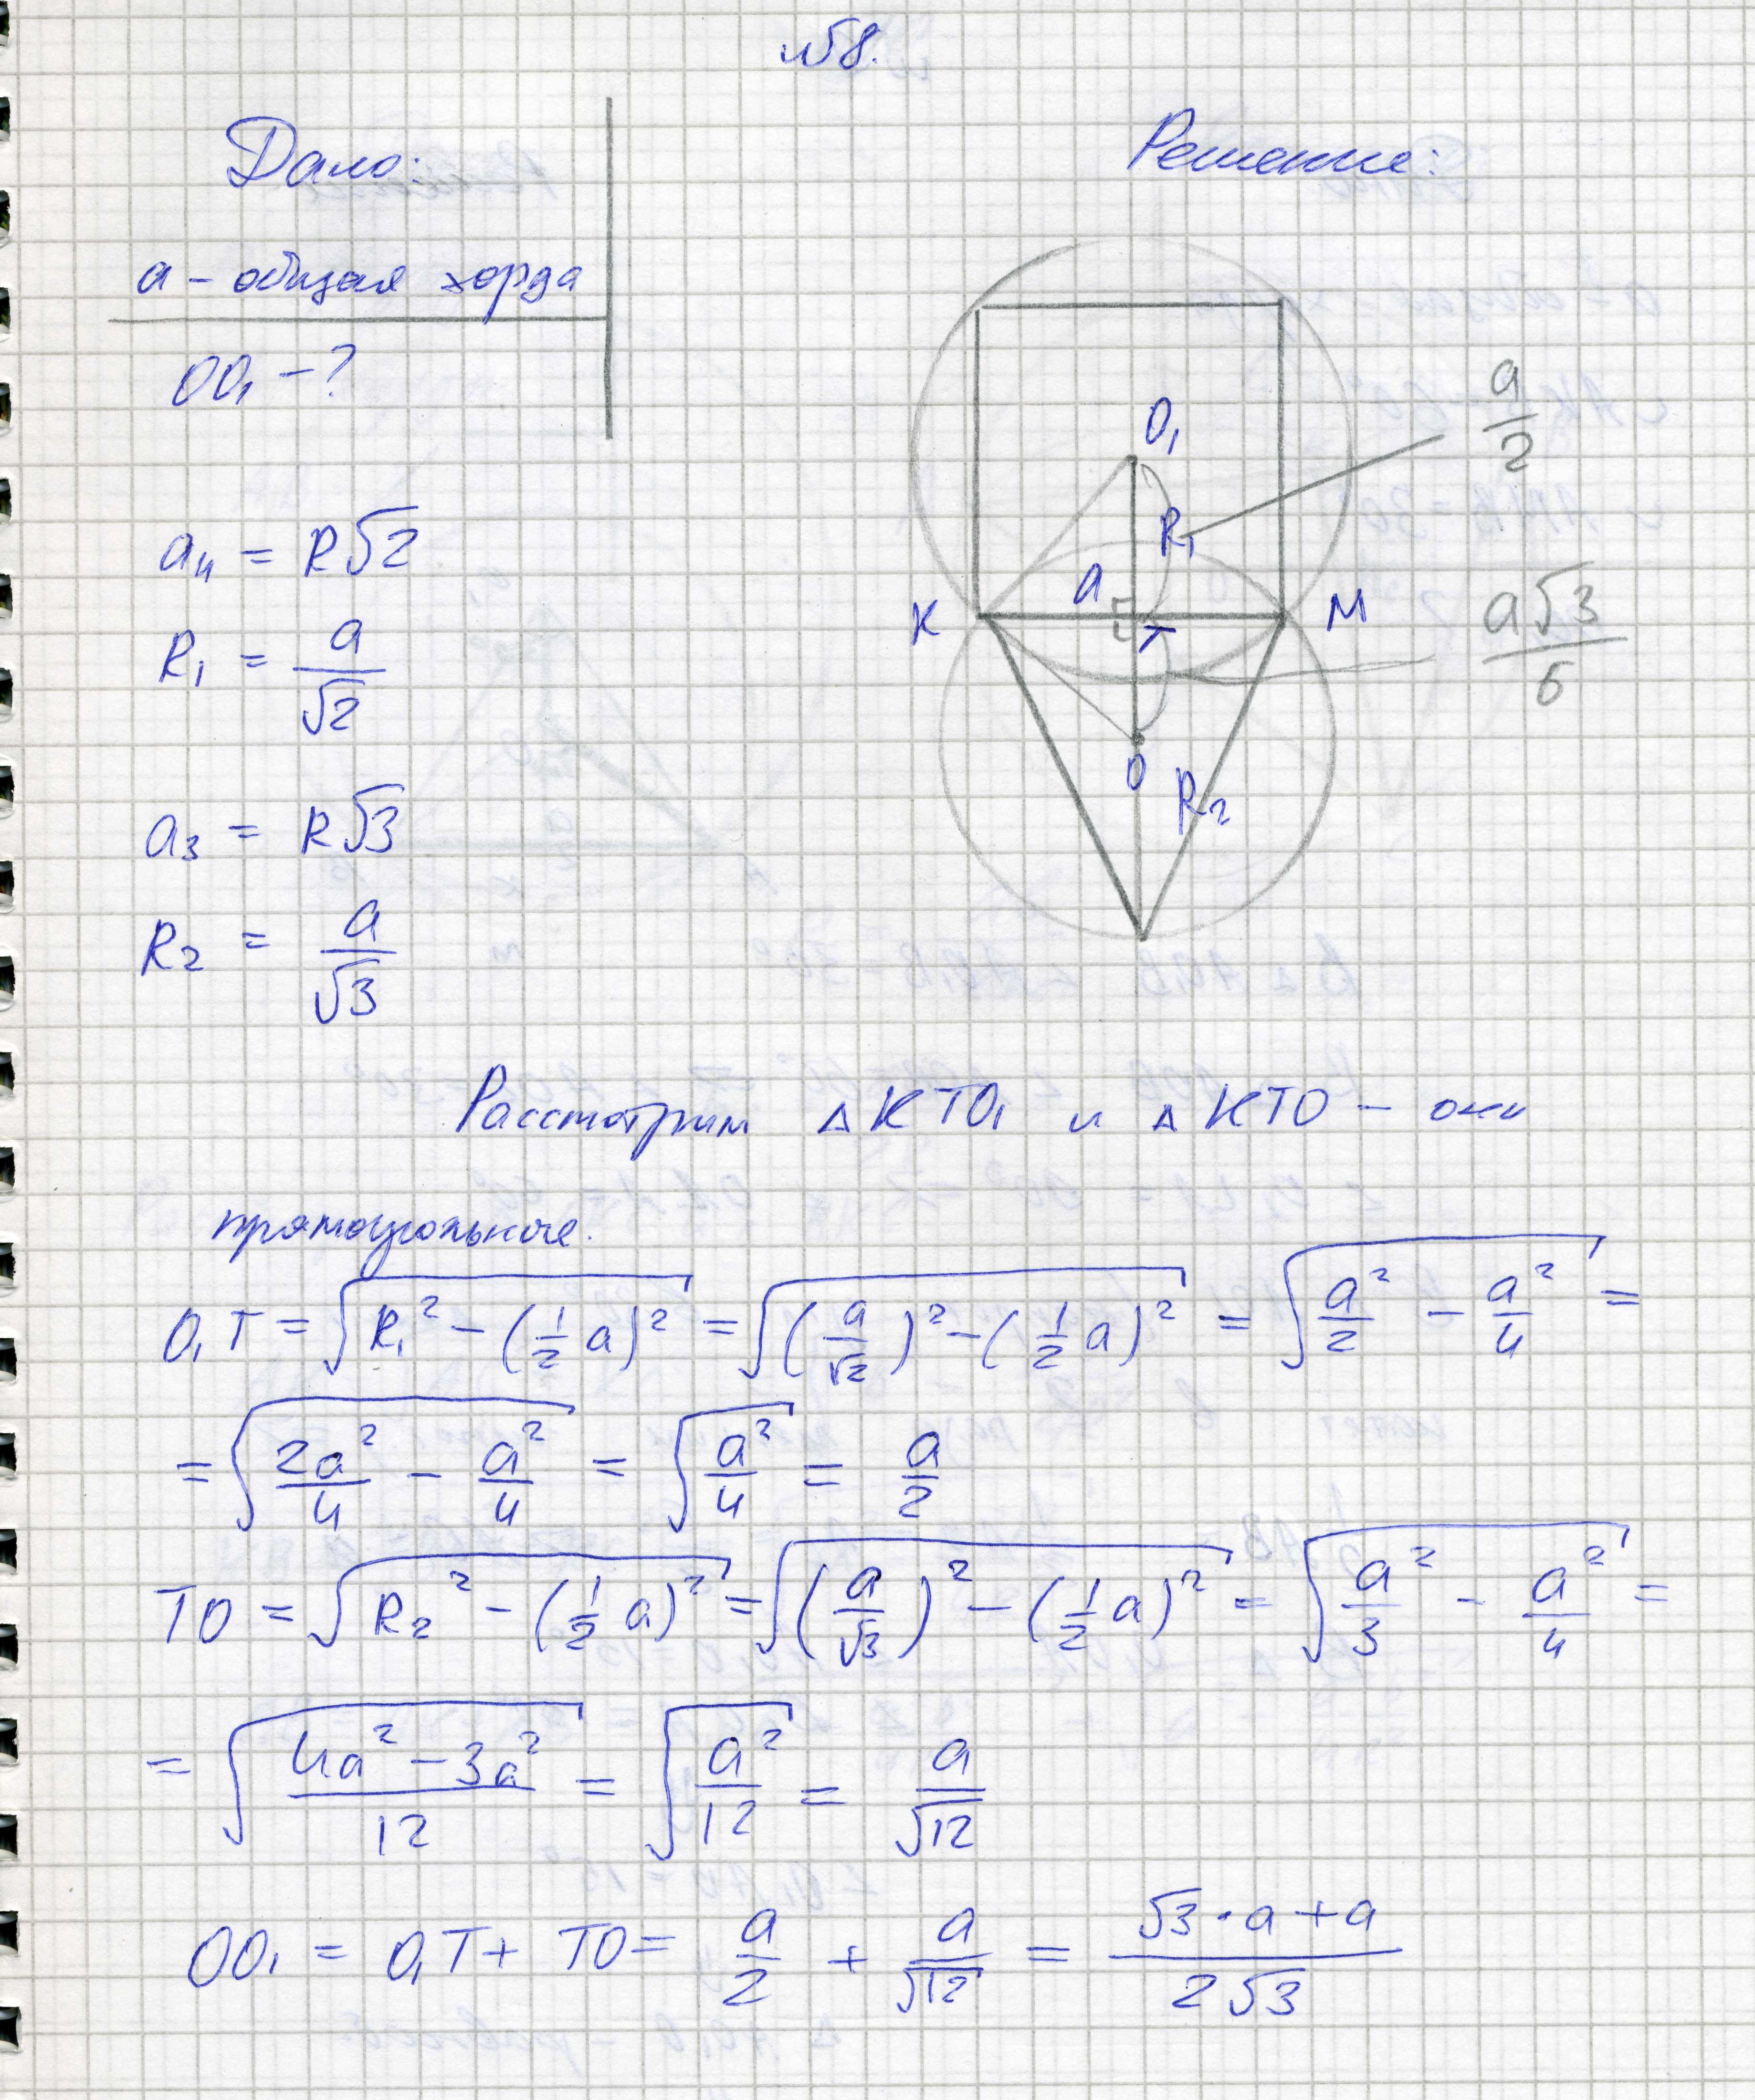 №8.
Дано:
Решение:
a – общая хорда
OO₁ – ?
a₄ = R√2
R₁ = a/√2
a₃ = R√3
R₂ = a/√3
O₁
R₁
a/2
a
K
T
M
a√3/6
O
R₂
Рассмотрим △KTO₁ и △KTO – они
прямоугольные.
O₁T = √(R₁² – (1/2 a)²) = √((a/√2)² – (1/2 a)²) = √(a²/2 – a²/4) =
= √(2a²/4 – a²/4) = √(a²/4) = a/2
TO = √(R₂² – (1/2 a)²) = √((a/√3)² – (1/2 a)²) = √(a²/3 – a²/4) =
= √((4a² – 3a²)/12) = √(a²/12) = a/√12
OO₁ = O₁T + TO = a/2 + a/√12 = (√3 · a + a)/(2√3)